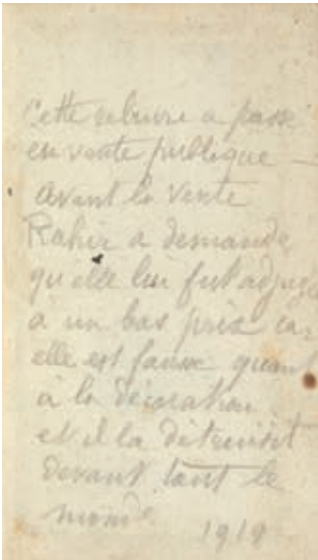 Cette reliure a passé
en vente publique —
avant la vente
Rahir a demandé
qu'elle lui fut adjugée
à un bas prix car
elle est fausse quant
à la décoration
et il la détruisit
devant tout le
monde
1919